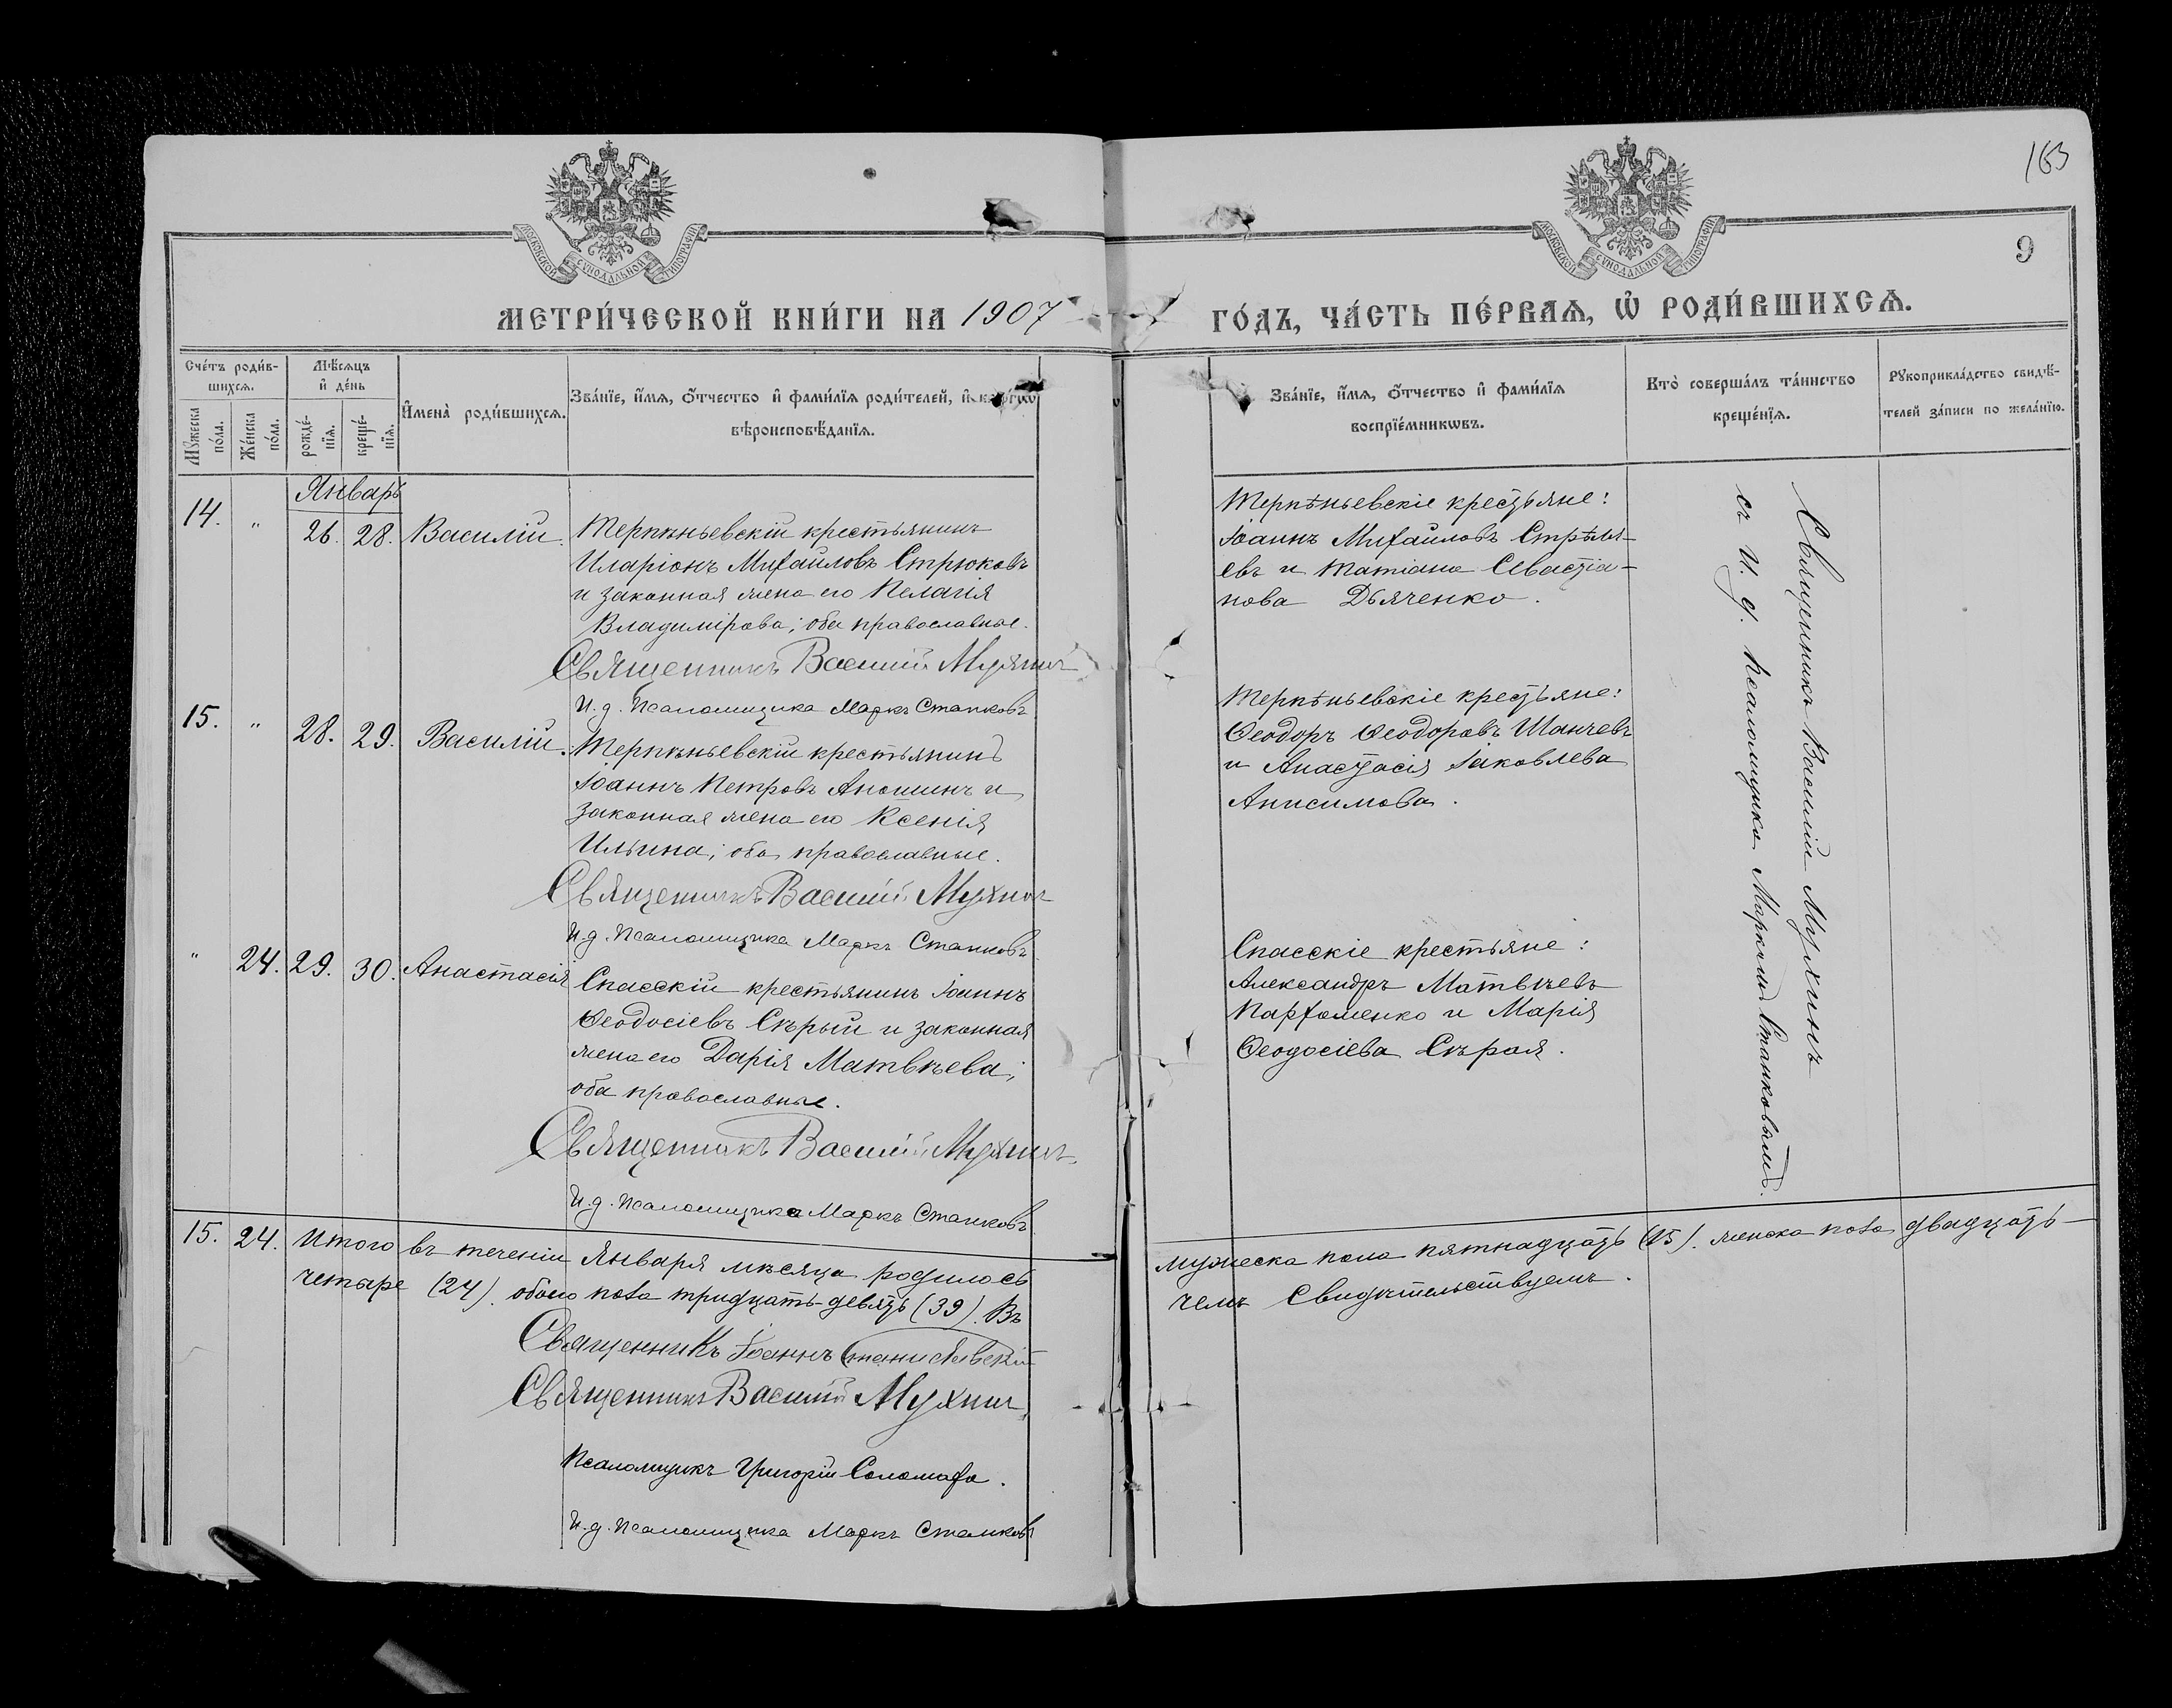 163
9
МОСКОВСКОЙ СѴНОДАЛЬНОЙ ТИПОГРАФІИ
МОСКОВСКОЙ СѴНОДАЛЬНОЙ ТИПОГРАФІИ
МЕТРИ́ЧЕСКОЙ КНИ́ГИ НА 1907
ГО́ДЪ, ЧА́СТЬ ПЕ́РВАѦ, Ѡ҆ РОДИ́ВШИХСѦ.
Счéтъ роди́в-
шихсѧ.
Мꙋ́жеска
по́ла.
Же́нска
по́ла.
Мѣ́сѧцъ
и҆ де́нь
рожде́-
нїѧ.
креще́-
нїѧ.
И҆мена̀ роди́вшихсѧ.
Зва́нїе, и҆́мѧ, ѻ҆́тчество и҆ фами́лїѧ роди́телей, и҆
вѣроисповѣ́данїѧ.
Зва́нїе, и҆́мѧ, ѻ҆́тчество и҆ фами́лїѧ
воспрїе́мникѡвъ.
Кто̀ соверша́лъ та́инство
креще́нїѧ.
Рꙋкоприкла́дство свидѣ́-
телей за́писи по жела́нїю.
Январь
14. " 26. 28. Василій.
Терпѣньевскій крестьянинъ
Иларіонъ Михайловъ Стрюковъ
и законная жена его Пелагія
Владимірова; оба православные.
Священникъ Василій Мухинъ
И.д. Псаломщика Маркъ Станковъ
Терпѣньевскіе крестьяне:
Іоаннъ Михайловъ
евъ и Татіана Севастіа-
нова Дьяченко.
15. " 28. 29. Василій.
Терпѣньевскій крестьянинъ
Іоаннъ Петровъ Аношинъ и
законная жена его Ксенія
Ильина; оба православные.
Священникъ Василій Мухинъ
И.д. Псаломщика Маркъ Станковъ
Терпѣньевскіе крестьяне:
Ѳеодоръ Ѳеодоровъ Шанчевъ
и Анастасія Іаковлева
Анисимова.
" 24. 29. 30. Анастасія
Спасскій крестьянинъ Іоаннъ
Ѳеодосіевъ Сѣрый и законная
жена его Дарія Матвѣева;
оба православные.
Священникъ Василій Мухинъ.
И.д. Псаломщика Маркъ Станковъ
Спасскіе крестьяне:
Александръ Матвѣевъ
Пархоменко и Марія
Ѳеодосіева Сѣрая.
Священникъ Василій Мухинъ
съ И. д. псаломщика Маркомъ Станковымъ.
15. 24. Итого въ теченіи Января мѣсяца родилось
мужеска пола пятнадцать (15). женска пола двадцать-
четыре (24). обоего пола тридцать-девять (39). Въ
чемъ Свидѣтельствуемъ.
Священникъ Іоаннъ Станиславскій
Священникъ Василій Мухинъ
Псаломщикъ Григорій Соломаха.
И.д. Псаломщика Маркъ Станковъ